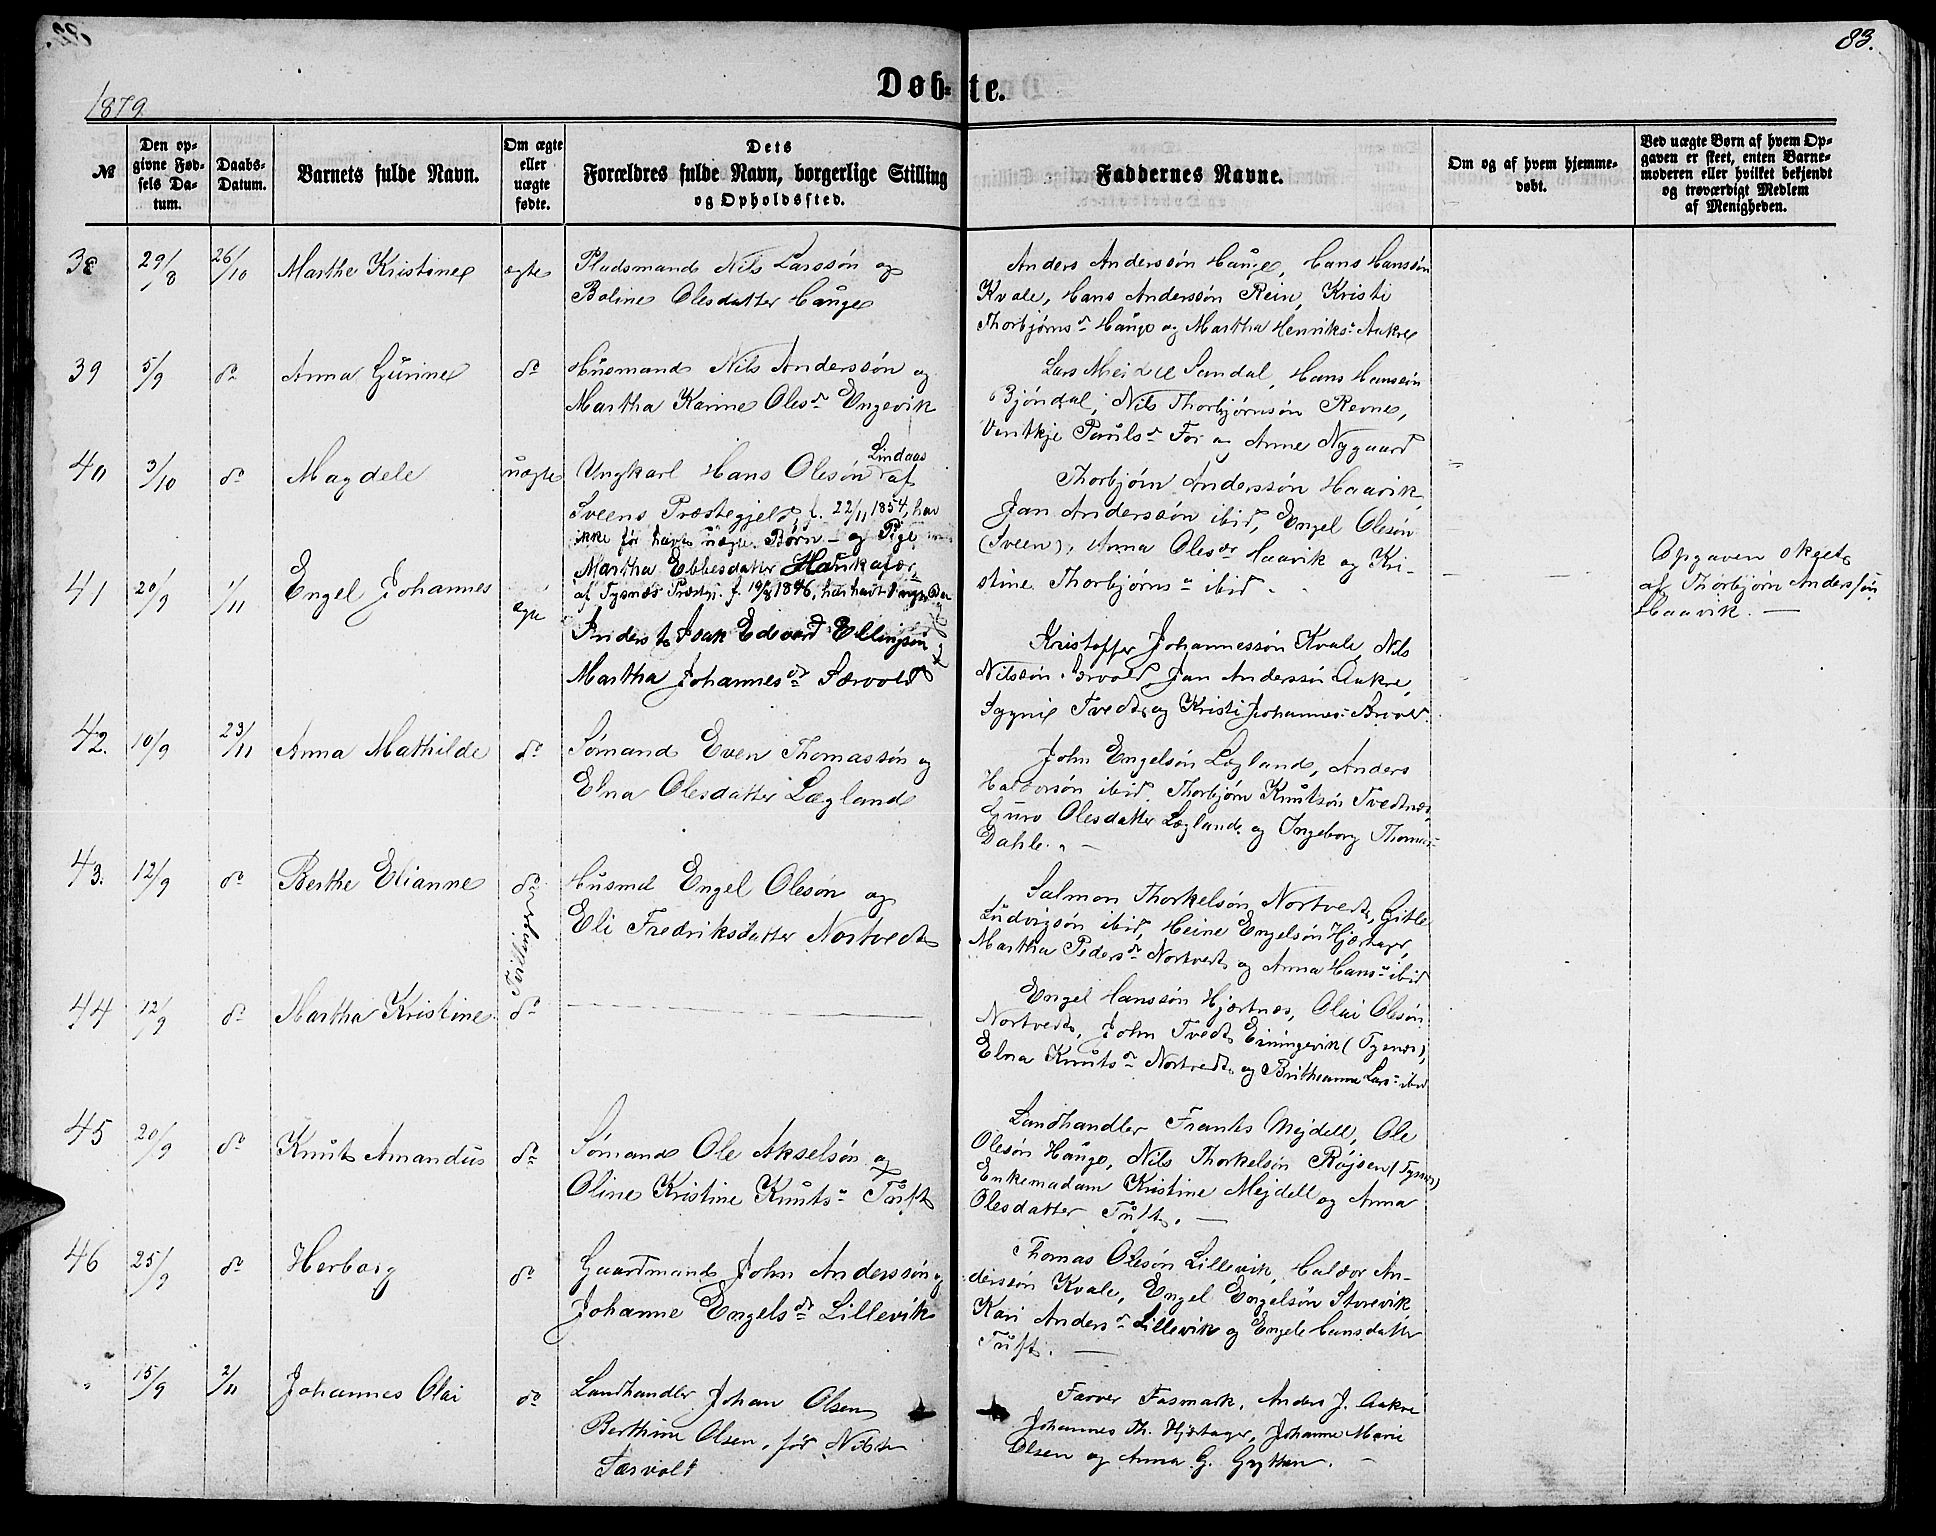 83.
Døb-te.
1879.
№
Den op-
givne Fød-
sels Da-
tum.
Daabs-
Datum.
Barnets fulde Navn.
Om ægte
eller
uægte
fødte.
Dets
Forældres fulde Navn, borgerlige Stilling
og Opholdsfted.
Faddernes Navne.
Om og af hvem hjemme-
døbt.
Ved uægte Børn af hvem Op-
gaven er skeet, enten Barne-
moderen eller hvilket bekjendt
og troværdigt Medlem
af Menigheden.
38 29/8 26/10 Marthe Kristine ægte Pladsmand Nils Larssøn og
Boline Olesdatter Hauge
Anders Anderssøn Hauge, Hans Hanssøn
Kvale, Hans Anderssøn Rein, Kristi
Thorbjørnsdr Hauge og Martha Henriksdr Aakre
39 5/9 do Anna Gurine do Husmand Nils Anderssøn og
Martha Karine Olesdr Engevik
Lars Sandal, Hans Hanssøn
Bjøndal, Nils Thorbjørnsøn Revne,
Ventkje Paulsdr For og Anne Nygaard
40 3/10 do Magdele uægte Ungkarl Hans Olesøn Lindaas af
Sveens Præstegjeld, f. 22/11 1854, har
ikke før havt uægte Børn - og Pige
Martha Ebbesdatter
af Tysnæs Præstgj. f. 19/8 1846, har havt 1 uægte
Thorbjørn Anderssøn Haavik,
Jan Anderssøn ibid, Engel Olesøn
(Sveen), Anna Olesdr Haavik og Kri-
stine Thorbjørnsdr ibid.
Opgaven skeet
af Thorbjørn Anderssøn
Haavik. —
41 20/9 1/11 Engel Johannes ægte
Isak Edvard Ellingsøn
Martha Johannesdr Særvold
Kristoffer Johannessøn Kvale, Nils
Nilssøn Særvold, Jan Anderssøn Aakre,
Sygni Tvedt og Kristi Johannesdr
42. 10/9 23/11 Anna Mathilde do Sømand Even Thomassøn og
Elna Olesdatter Lægland
John Engelsøn Lægland, Anders
Haldorsøn ibid. Thorbjørn Knutsøn Tvednæs,
Guro Olesdatter Lægland og Ingeborg Thomas-
Dahle. —
43. 12/9 do Berthe Elianne do Tvillinger Husmd Engel Olesøn og
Eli Fredriksdatter Nortvedt
Salmon Thorkelsøn Nortvedt, Gitle
Ludvigsøn ibid, Heine Engelsøn Hjærtager,
Martha Pedersdr Nortvedt og Anna Hansdr ibid
44 12/9 do Martha Kristine do
Engel Hanssøn Hjertnes, Olai Olesøn
Nortvedt, John Tvedt Einingevik (Tysnæs),
Elna Knutsdr Nortvedt og Britheanna Larsdr ibid
45 20/9 do Knut Amandus do Sømand Ole Akselsøn og
Oline Kristine Knutsdr Tuft
Landhandler Frants Mejdell, Ole
Olesøn Hauge, Nils Thorkelsøn Røjsen (Tysnes)
Enkemadam Kristine Mejdell og Anna
Olesdatter Tuft. —
46 25/9 do Herborg do Gaardmand John Anderssøn og
Johanne Engelsdr Lillevik
Thomas Olesøn Lillevik, Haldor An-
derssøn Kvale, Engel Engelsøn Storevik,
Kari Andersdr Lillevik og Engele Hansdatter
Tuft. —
" 15/9 2/11 Johannes Olai do Landhandler Johan Olsen
Berthine Olsen, før Nilsen
Særvold
Farver Fasmark, Anders J. Aakre
Johannes Th. Hjertager, Johanne Marie
Olsen og Anna G. Grytten. —